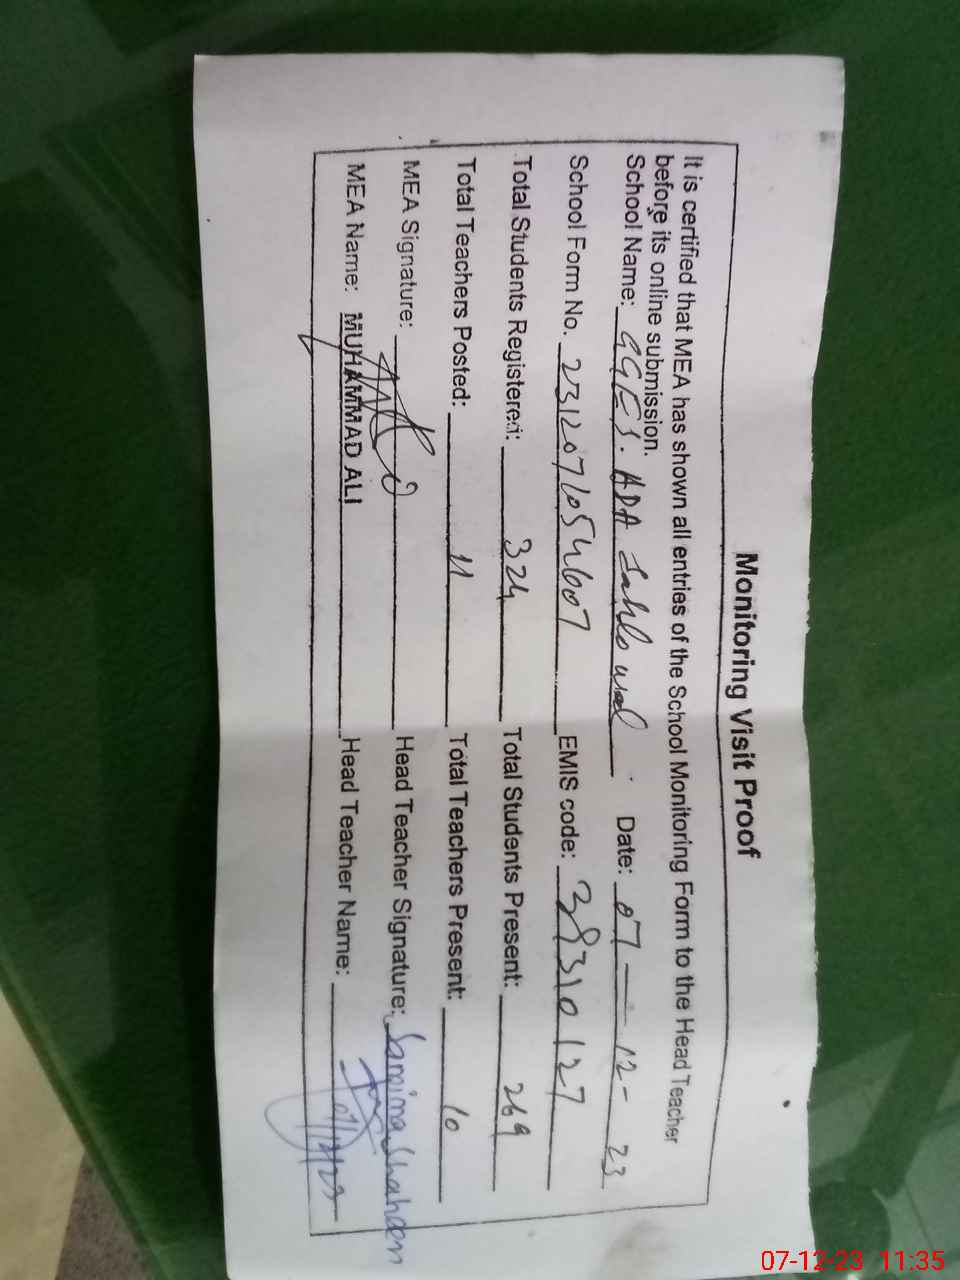 Monitoring Visit Proof
It is certified that MEA has shown all entries of the School Monitoring Form to the Head Teacher
before its online submission.
School Name: GGES. ADA Sahlowal. Date: 07-12-23
School Form No. 2312071054607 EMIS code: 38310127
Total Students Registered: 324 Total Students Present: 269
Total Teachers Posted: 11 Total Teachers Present: 10
MEA Signature: Head Teacher Signature: Samina Shaheen
MEA Name: MUHAMMAD ALI Head Teacher Name:
07-12-23 11:35